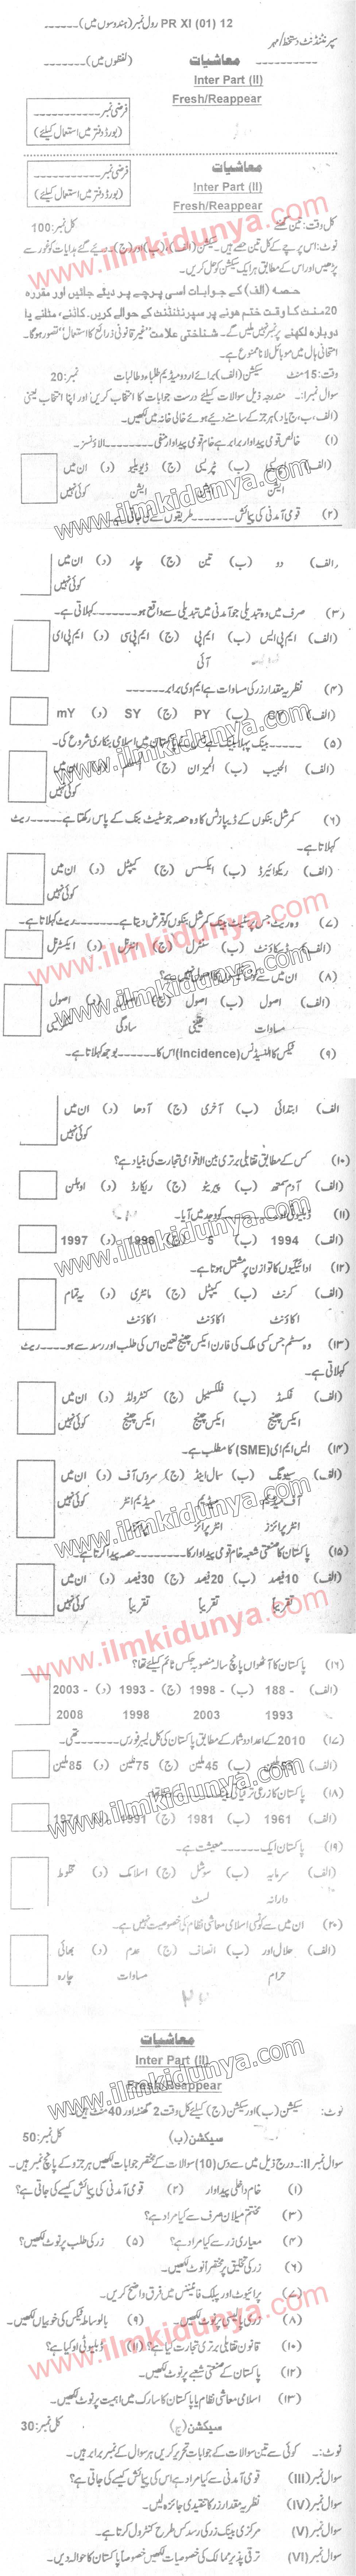 PR XI (01) 12 رول نمبر (ہندسوں میں) ------
سپرنٹنڈنٹ دستخط/مہر
معاشیات (لفظوں میں) ----------
Inter Part (II)
Fresh/Reappear
فرضی نمبر ------------
(بورڈ دفتر میں استعمال کیلئے)
معاشیات
Inter Part (II)
Fresh/Reappear
فرضی نمبر ------------
(بورڈ دفتر میں استعمال کیلئے)
کل وقت: تین گھنٹے کل نمبر: 100
نوٹ: اس پرچے کے کل تین حصے ہیں۔ سیکشن (الف)، (ب) اور (ج)۔ دیئے گئے ہدایات کو غور سے
پڑھیں اور اس کے مطابق ہر ایک سیکشن کو حل کریں۔
حصہ (الف) کے جوابات اسی پرچے پر دیئے جائیں اور مقررہ
20 منٹ کا وقت ختم ہونے پر سپرنٹنڈنٹ کے حوالے کریں۔ کاٹنے، مٹانے یا
دوبارہ لکھنے پر نمبر نہیں ملیں گے۔ شناختی علامت "غیر قانونی ذرائع کا استعمال" تصور ہوگا۔
امتحانی ہال میں موبائل لانا ممنوع ہے۔
وقت: 15 منٹ سیکشن (الف) برائے اردو میڈیم طلباء و طالبات نمبر: 20
سوال نمبر I: مندرجہ ذیل سوالات کیلئے درست جوابات کا انتخاب کریں اور اپنا انتخاب یعنی
(الف، ب، ج یا د) ہر جز کے سامنے دیئے ہوئے خالی خانہ میں لکھیں۔
(۱) خالص قومی پیداوار برابر ہے خام قومی پیداوار منفی -------- الاؤنسز۔
(ب) ڈپریسی ایشن (ج) ڈیویلیو ایشن (د) ان میں کوئی نہیں
(۲) قومی آمدنی کی پیمائش ------- طریقوں سے کی جاتی ہے۔
(الف) دو (ب) تین (ج) چار (د) ان میں کوئی نہیں
(۳) صرف میں وہ تبدیلی جو آمدنی میں تبدیلی سے واقع ہو ------- کہلاتی ہے۔
(الف) ایم پی ایس (ب) ایم پی آئی (ج) ایم پی سی (د) ایم پی ای
(۴) نظریہ مقدار زر کی مساوات ہے ایم وی برابر --------
(ب) PY (ج) SY (د) mY
(۵) ------ بینک پہلا بینک ہے جس نے پاکستان میں اسلامی بنکاری شروع کی۔
(الف) الحبیب (ب) المیزان (ج) (د) ان میں کوئی نہیں
(۶) کمرشل بنکوں کے ڈیپازٹس کا وہ حصہ جو سٹیٹ بنک کے پاس رکھتا ہے ------ ریٹ
کہلاتا ہے۔
(الف) ریکوائیرڈ (ب) ایکسس (ج) کیپٹل (د) ان میں کوئی نہیں
(۷) وہ ریٹ جس پر سٹیٹ بینک کمرشل بنکوں کو قرض دیتا ہے ------- ریٹ کہلاتا ہے۔
(الف) ڈسکاؤنٹ (ب) سنٹرل (ج) انٹرنل (د) ایکسٹرنل
(۸) ان میں سے کونسا ٹیکس کا اصول نہیں ہے؟
(الف) اصول مساوات (ب) اصول یقینی (ج) اصول سادگی (د) اصول
(۹) ٹیکس کا انسیڈنس (Incidence) اس کا ------ بوجھ کہلاتا ہے۔
(الف) ابتدائی (ب) آخری (ج) آدھا (د) ان میں کوئی نہیں
(۱۰) کس کے مطابق تقابلی برتری بین الاقوامی تجارت کی بنیاد ہے؟
(الف) آدم سمتھ (ب) پیریٹو (ج) ریکارڈو (د) اوہلن
(۱۱) ڈبلیو ٹی او ------- کو وجود میں آیا۔
(الف) 1994 (ب) (ج) 1996 (د) 1997
(۱۲) ادائیگیوں کا توازن پر مشتمل ہوتا ہے۔
(الف) کرنٹ اکاؤنٹ (ب) کیپٹل اکاؤنٹ (ج) مانٹری اکاؤنٹ (د) یہ تمام
(۱۳) وہ سسٹم جس کسی ملک کی فارن ایکس چینج تعین اس کی طلب اور رسد سے ہو ----- ریٹ
کہلاتی ہے۔
(الف) فکسڈ ایکس چینج (ب) فلکسیبل ایکس چینج (ج) کنٹرولڈ ایکس چینج (د) ان میں کوئی نہیں
(۱۴) ایس ایم ای (SME) کا مطلب ہے۔
(الف) سیونگ آف میڈیم انٹر پرائزز (ب) سمال اینڈ میڈیم (ج) سروس آف میڈیم انٹر پرائیزز (د) ان میں کوئی نہیں
(۱۵) پاکستان کا صنعتی شعبہ خام قومی پیداوار کا --------- حصہ پیدا کرتا ہے۔
(الف) 10 فیصد تقریباً (ب) 20 فیصد تقریباً (ج) 30 فیصد تقریباً (د) ان میں کوئی نہیں
(۱۶) پاکستان کا آٹھواں پانچ سالہ منصوبہ جکس ٹائم کیلئے تھا؟
(الف) 188 - 1993 (ب) 1998 - 2003 (ج) 1993 - 1998 (د) 2003 - 2008
(۱۷) 2010 کے اعداد و شمار کے مطابق پاکستان کی کل لیبر فورس ------- تھی۔
(ب) 45 ملین (ج) 75 ملین (د) 85 ملین
(۱۸) پاکستان کا زرعی ترقیاتی
(الف) 1961 (ب) 1981 (ج) 1991 (د) 1971
(۱۹) پاکستان ایک ------ معیشت ہے۔
(الف) سرمایہ دارانہ (ب) سوشلسٹ (ج) اسلامک (د) مخلوط
(۲۰) ان میں سے کونسی اسلامی معاشی نظام کی خصوصیت نہیں ہے۔
(الف) حلال اور حرام (ب) انصاف (ج) عدم مساوات (د) بھائی چارہ
معاشیات
Inter Part (II)
Fresh/Reappear
نوٹ: سیکشن (ب) اور سیکشن (ج) کیلئے کل وقت 2 گھنٹہ اور 40 منٹ ہیں۔
سیکشن (ب) کل نمبر: 50
سوال نمبر II: درج ذیل میں سے دس (10) سوالات کے مختصر جوابات لکھیں ہر جزو کے پانچ نمبر ہیں۔
(۱) خام داخلی پیداوار (۲) قومی آمدنی کی پیمائش کیسے کی جاتی ہے؟
(۳) مختتم میلان صرف سے کیا مراد ہے؟
(۴) معیاری زر سے کیا مراد ہے؟ (۵) زر کی طلب پر نوٹ لکھیں؟
(۶) زر کی تخلیق پر مختصراً نوٹ لکھیں۔
(۷) پرائیوٹ اور پبلک فائینینس میں فرق واضح کریں۔
(۸) زری پالیسی پر نوٹ لکھیں۔ (۹) بالواسطہ ٹیکس کی خوبیاں لکھیں۔
(۱۰) قانون تقابلی برتری تجارت کیا ہے؟ (۱۱) ڈبلیو ٹی او کیا ہے؟
(۱۲) پاکستان کے صنعتی شعبے پر نوٹ لکھیں۔
(۱۳) اسلامی معاشی نظام یا پاکستان کا سارک میں اہمیت پر نوٹ لکھیں۔
سیکشن (ج) کل نمبر: 30
نوٹ:- کوئی سے تین سوالات کے جوابات تحریر کریں ہر سوال کے نمبر برابر ہیں۔
سوال نمبر (III) قومی آمدنی سے کیا مراد ہے اس کی پیمائش کیسے کی جاتی ہے؟
سوال نمبر (IV) نظریہ مقدار زر کا تنقیدی جائزہ لیں۔
سوال نمبر (V) مرکزی بینک زر کی رسد کس طرح کنٹرول کرتا ہے۔
سوال نمبر (VI) ترقی پذیر ممالک کی خصوصیات لکھیں خصوصاً پاکستان کا حوالہ دیں۔
www.ilmkidunya.com